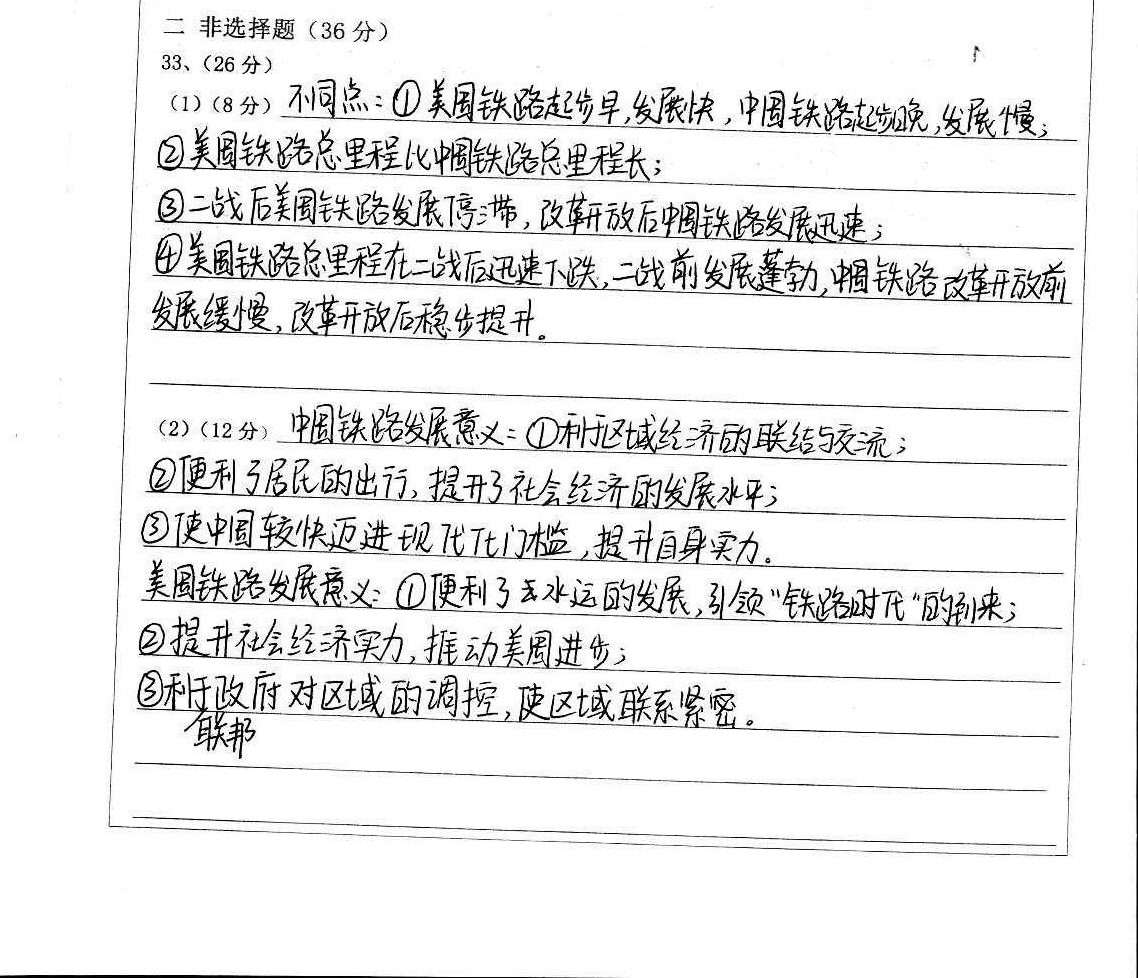 二 非选择题（36 分）
33、（26 分）
（1）（8 分） 不同点：①美国铁路起步早，发展快，中国铁路起步晚，发展慢；
②美国铁路总里程比中国铁路总里程长；
③二战后美国铁路发展停滞，改革开放后中国铁路发展迅速；
④美国铁路总里程在二战后迅速下跌，二战前发展蓬勃，中国铁路改革开放前
发展缓慢，改革开放后稳步提升。
（2）（12 分） 中国铁路发展意义：①利于区域经济的联结与交流；
②便利了居民的出行，提升了社会经济的发展水平；
③使中国较快迈进现代化门槛，提升自身实力。
美国铁路发展意义：①便利了水运的发展，引领“铁路时代”的到来；
②提升社会经济实力，推动美国进步；
③利于政府对区域的调控，使区域联系紧密。
联邦